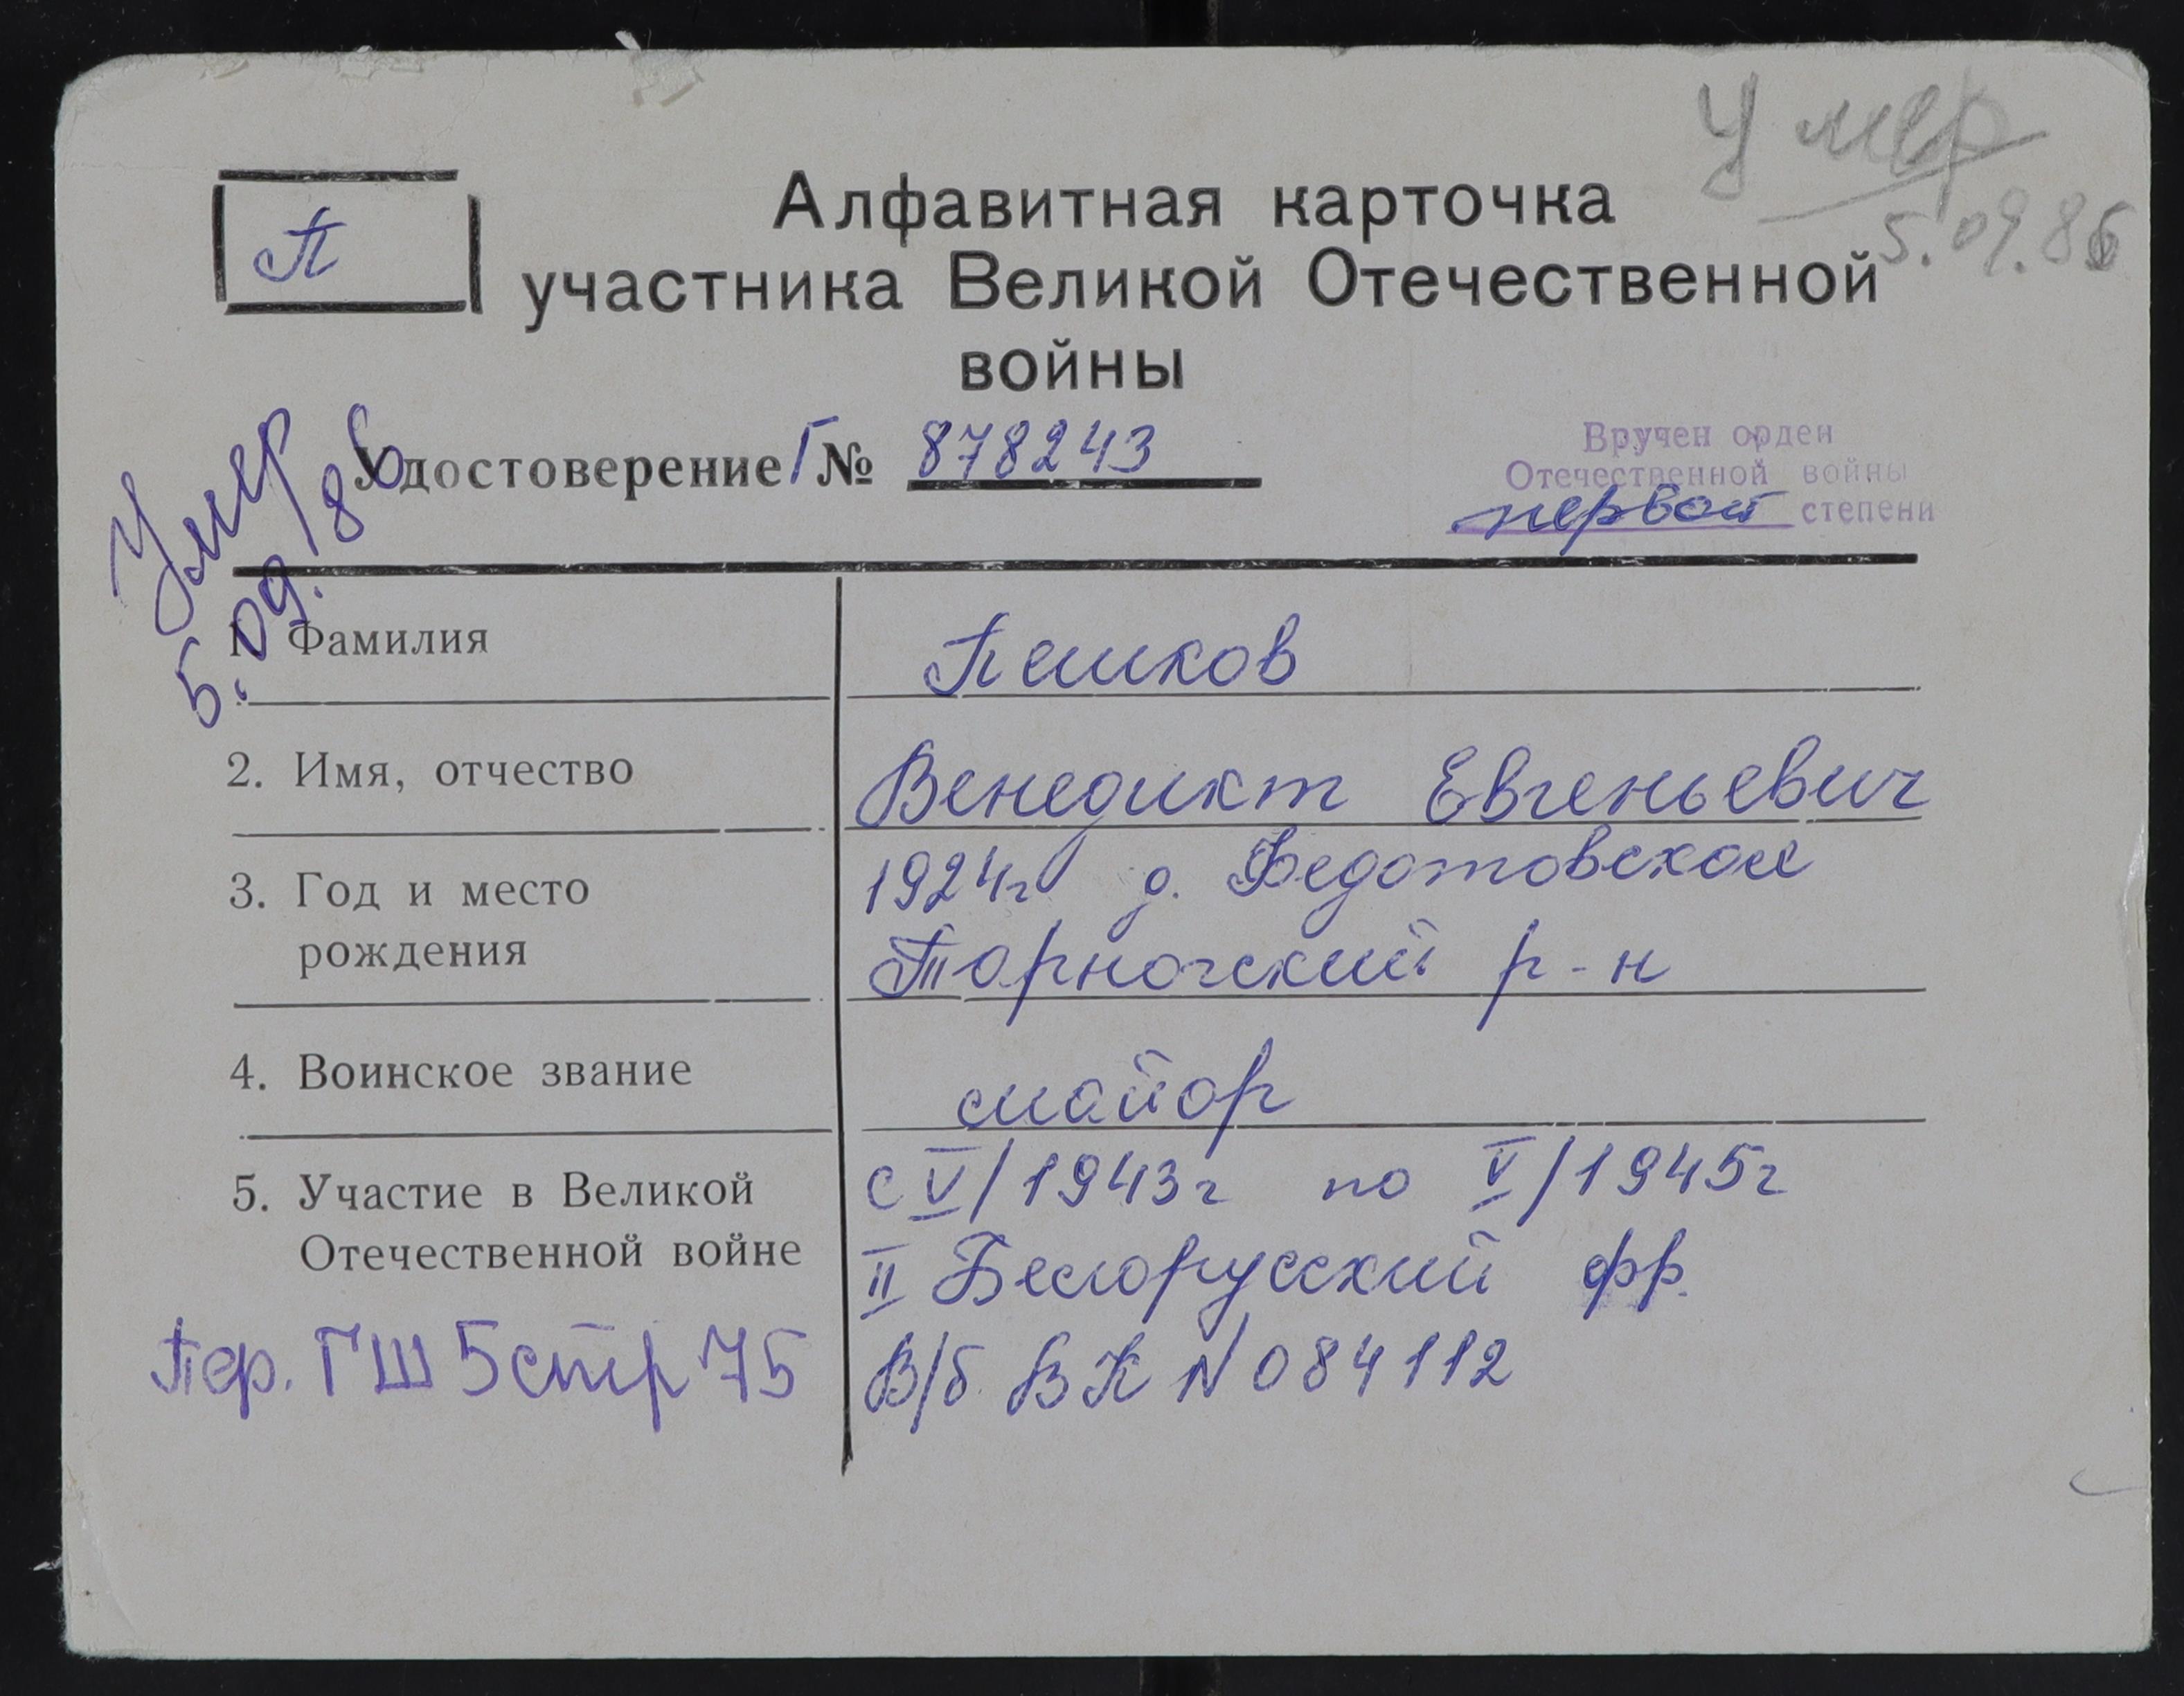 Умер
5.09.86
П
Алфавитная карточка
участника Великой Отечественной
войны
Умер
5.09.86
Удостоверение Г № 878243
Вручен орден
Отечественной войны
первой степени
1. Фамилия Пешков
2. Имя, отчество Венедикт Евгеньевич
3. Год и место рождения 1924г д. Федотовская
Тарногский р-н
4. Воинское звание майор
5. Участие в Великой Отечественной войне с V/1943г по V/1945г
II Белорусский фр.
В/б ВК N 084112
Пер. ГШ 5 стр 75